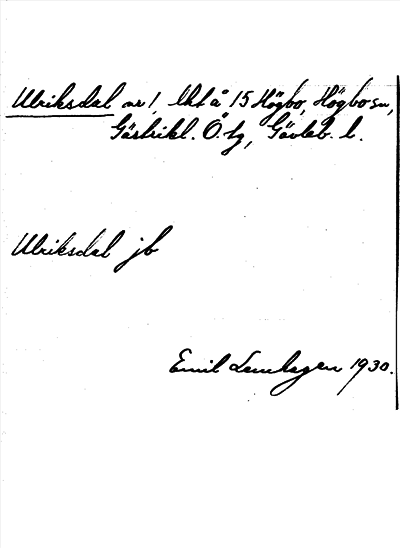 Ulriksdal nr 1, lht å 15 Högbo, Högbo sn,
Gästrikl. Ö. tg, Gävleb. l.
Ulriksdal jb
Emil Lenhagen 1930.